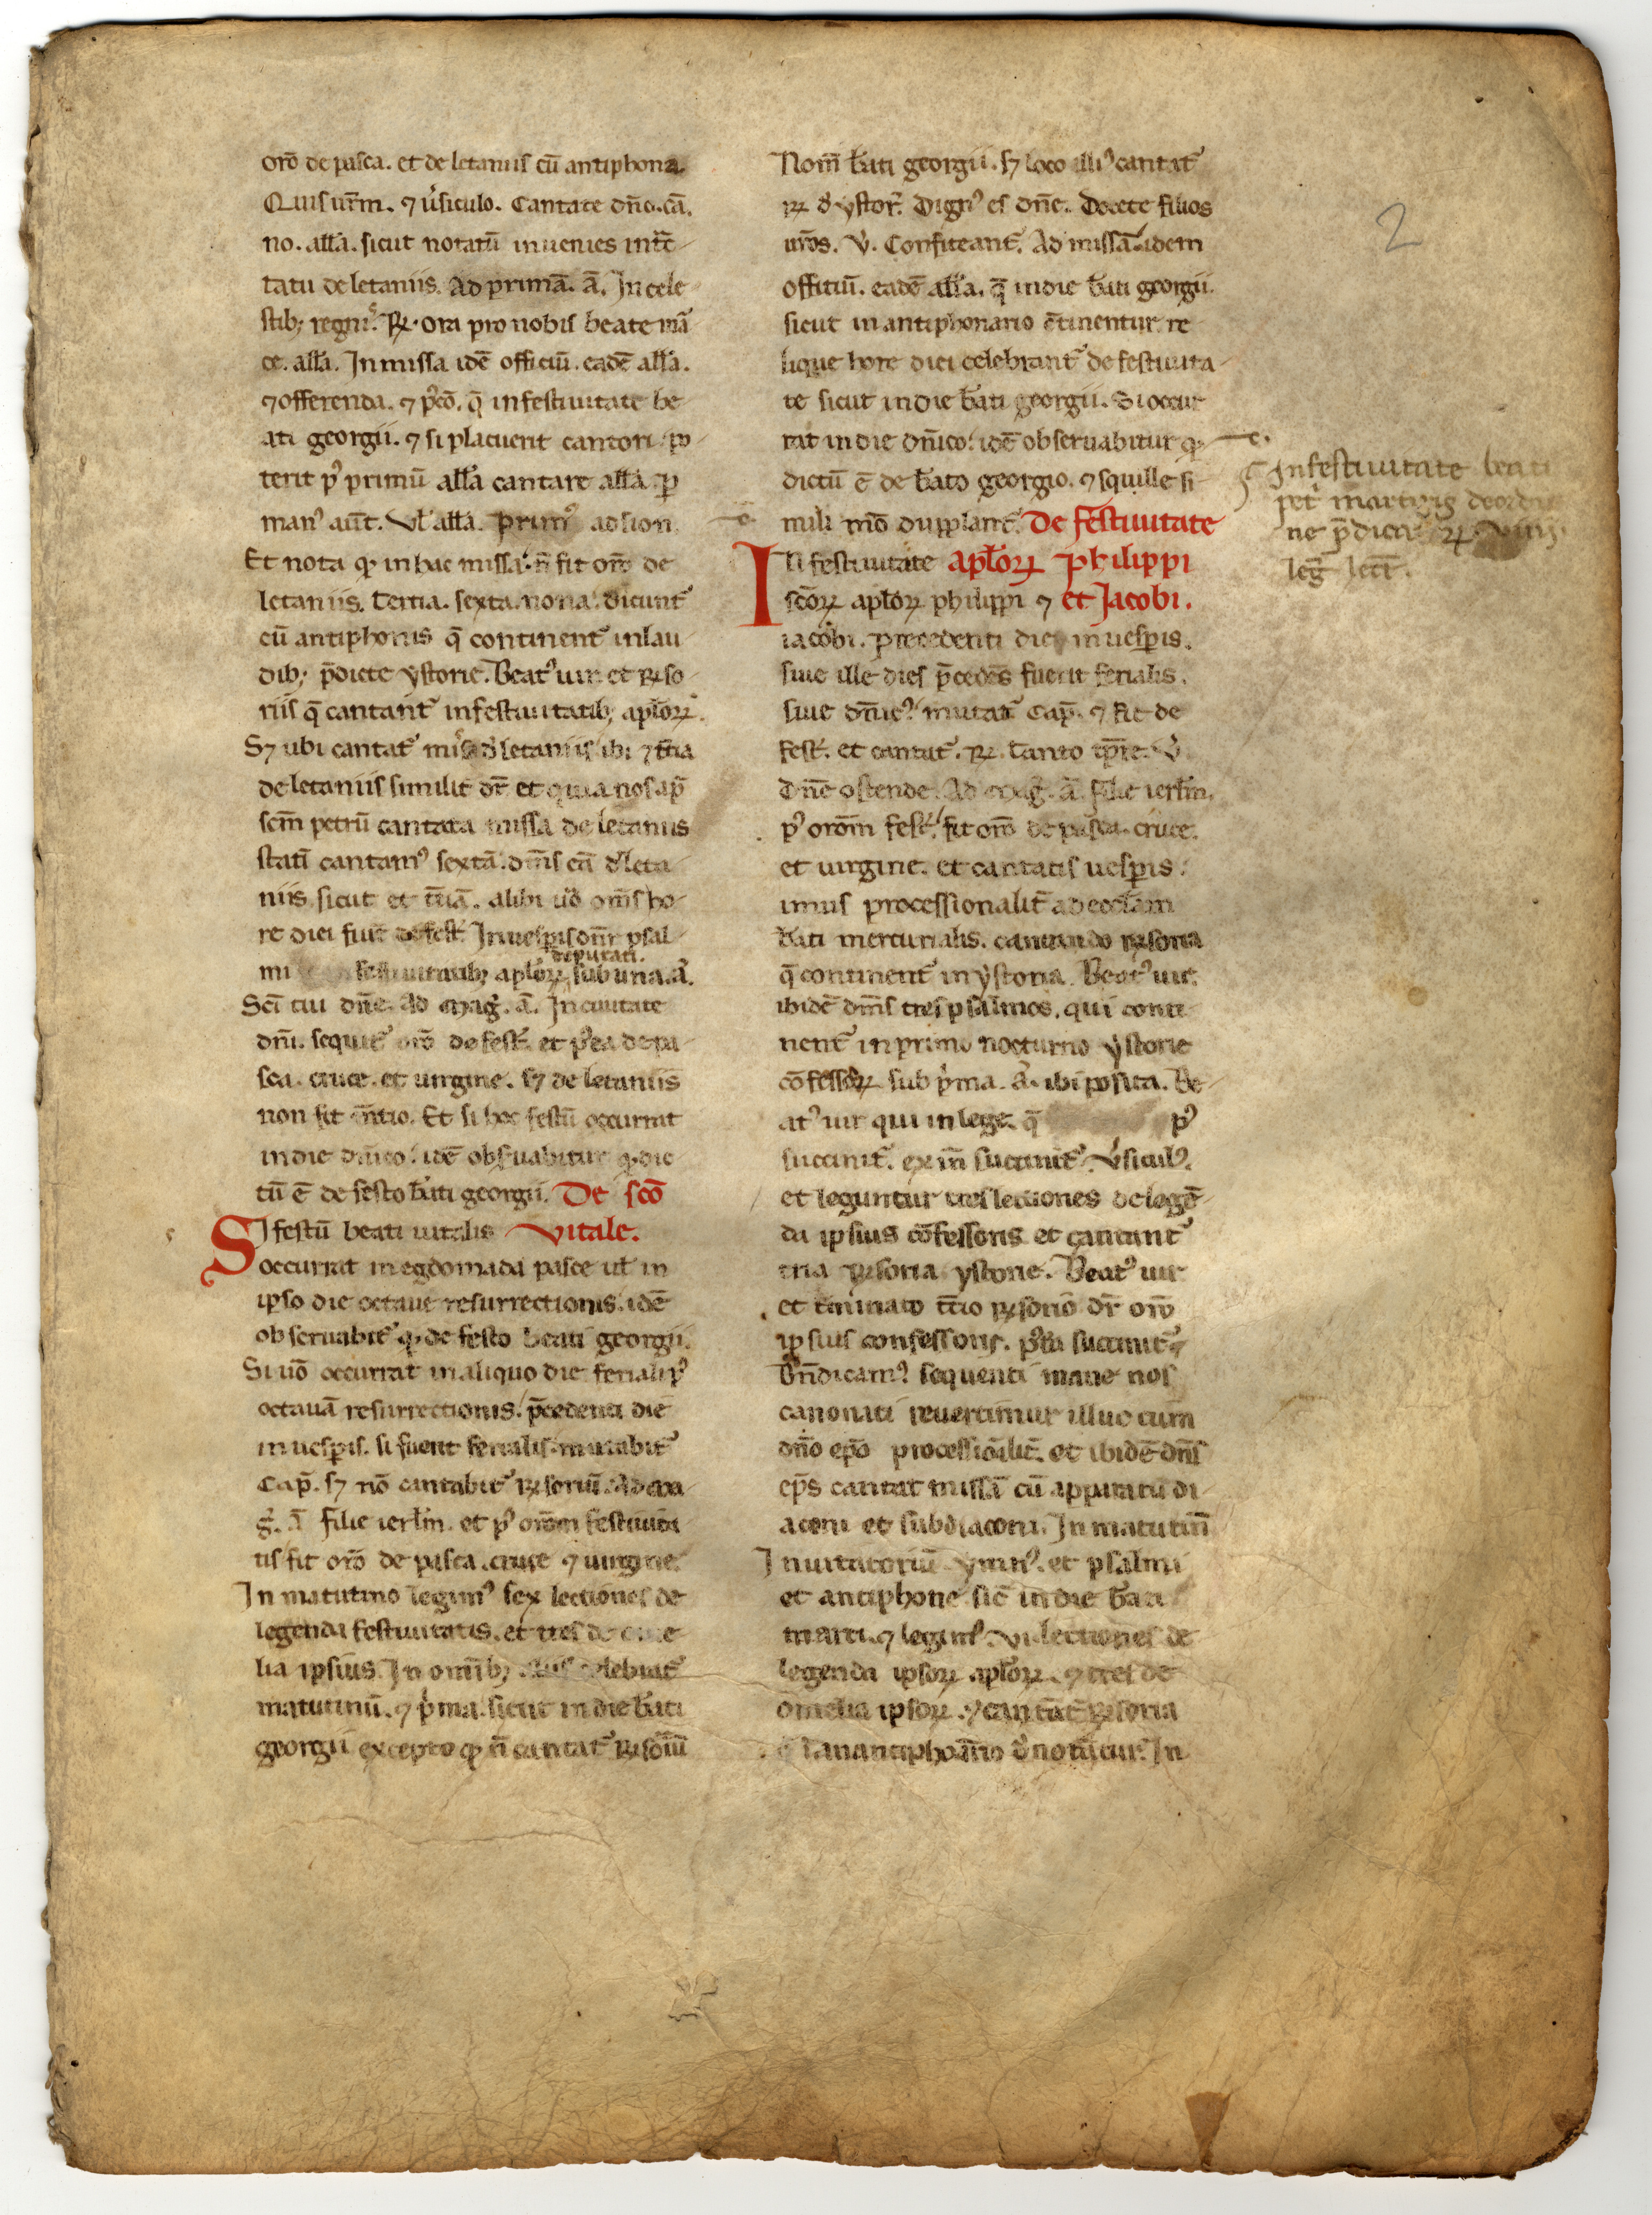 orō de pasca. et de letaniis cū antiphona.
Quis ur̄m. ⁊ v̓siculo. Cantate dn̄o. cā.
no. all̓a. sicut notatū inuenies in tc̄
tatu de letaniis. Ad primā. ā. In cele
stib; regni.ᵒ ℞. ora pro nobis beate
ce. all̓a. In missa idē officiū. eadē all̓a.
⁊ offerenda. ⁊ p̓cō. q̄ in festiuitate be
ati georgii. ⁊ si placuerit cantori. po
terit pꝰ primū all̓a cantare all̓a. ꝑ
manꝰ aūt. Vl̓ all̓a. primꝰ ad sion.
Et nota qꝫ in hac missa. n̄ fit orō de
letaniis. Tertia. sexta. nona. dicunt᷑
cū antiphonis q̄ continent᷑ in lau
dib; p̄dicte ystorie. Beatꝰ uir. et ℞so
riis q̄ cantant᷑ in festiuitatib; aplōꝝ.
Sꝫ ubi cantat᷑ miss̄ d̓ letaniis ibi ⁊ tt̄ia
de letaniis similit᷑ dr̄ et quia nos ap̄
scm̄ petrū cantata missa de letaniis
statī cantamꝰ sextā. dm̄s eā d̓ leta
niis. sicut et tt̄iā. alibi ūo om̄s ho
re diei fiūt de fest̓. In uesp̓is dn̄r psal
deputati.
mi festiuitatib; aplōꝝ sub una. ā.
Scī tui dn̄e. Ad mag̓. ā. In ciuitate
dn̄i. sequit᷑ orō de fest̓. et p̓ea de pa
sca. cruce. et uirgine. sꝫ de letaniis
non fit m̄tio. Et si hoc festū occurrat
in die dn̄ico. idē obs̓uabitur qꝫ dic
tū ē de festo b̄ati georgii. De sc̄o
Si festū beati uitalis Vitale.
occurrat in egdomada pasce ul̓ in
ipso die octaue resurrectionis. idē
obseruabit᷑ qꝫ de festo beati georgii.
Si ūo occurrat in aliquo die feriali pꝰ
octauā resurrectionis. p̄cedenti die
in uesp̓is. si fuerit ferialis. mutabit᷑
Cap̄. sꝫ nō cantabit᷑ ℞soriū. Ad ma
g̓. ā filie ierl̄m. et pꝰ orōm festiuita
tis fit orō de pasca. cruce ⁊ uirgine.
In matutino legimꝰ sex lectiones de
legenda festiuitatis. et tres de
lia ipsius. In omīb; celebrat᷑
matutinū. ⁊ p̓ma. sicut in die b̄ati
georgii excepto qꝫ n̄ cantat᷑ ℞soriū
Nom̄ b̄ati georgii. sꝫ loco illiꝰ cantat᷑
℞ d̓ ystor̓. Dignꝰ es dn̄e. Docete filios
ur̄os. V̓. Confiteant᷑. Ad missā. idem
offitiū. eadē all̓a. q̄ in die b̄ati georgii.
sicut in antiphonario ꝯtinentur. re
lique hore diei celebrant᷑ de festiuita
te sicut in die b̄ati georgii. Si occur
rat in die dn̄ico. idē obseruabitur qꝫ
dictū ē de b̄ato georgio. ⁊ squille si
mili mō dupplant᷑. De festiuitate
In festiuitate aplōꝝ philippi
scōꝝ aplōꝝ philippi ⁊ et Jacobi.
iacobi. precedenti die in uesp̓is.
siue ille dies p̄cedēs fuerit ferialis.
siue dn̄icꝰ. mutat᷑ Cap̄. ⁊ fit de
fest̓. et cantat᷑. ℞. Tanto tp̄re. V̓
Dn̄e ostende. Ad mag̓. ā. filie ierl̄m.
pꝰ orōm fest̓. fit orō de pasca. cruce.
et uirgine. et cantatis uesp̓is.
imus processionalit᷑ ad eccl̄am
b̄ati mercurialis. cantando ℞soria
q̄ continent᷑ in ystoria. Beatꝰ uir.
ibidē dm̄s tres psalmos. qui conti
nent᷑ in primo nocturno ystorie
cōfessoꝝ sub p̓ma. ā. ibi posita. Be
atꝰ uir qui in lege. q̄ pꝰ
succinit᷑. ex īn succinit᷑. V̓siculꝰ.
et leguntur tres lectiones de legē
da ipsius cōfessoris et cantant᷑
tria ℞soria ystorie. Beatꝰ uir
et t̄minato tt̄io ℞sorio dr̄ orō
ipsius confessoris. p̓ea succinit᷑
Bn̄dicamꝰ sequenti mane nos
canonici reuertimur illuc cum
dn̄o ep̄o processiōalit᷑. et ibidē dn̄s
ep̄s cantat missā cū apparatu di
aconi et subdiaconi. In matutin̄
Inuitatoriū. ymnꝰ. et psalmi
et antiphone sic̄ in die b̄ati
marci. ⁊ legimꝰ. vi. lectiones de
legenda ipsoꝝ aplōꝝ. ⁊ tres de
omelia ipsoꝝ. ⁊ cantāt᷑ ℞soria
antiphoārio d̓notātur. In
2
In festiuitate beati
pet̓ martyris de ordi
ne p̄dica ℞
leg̓ lect̄.